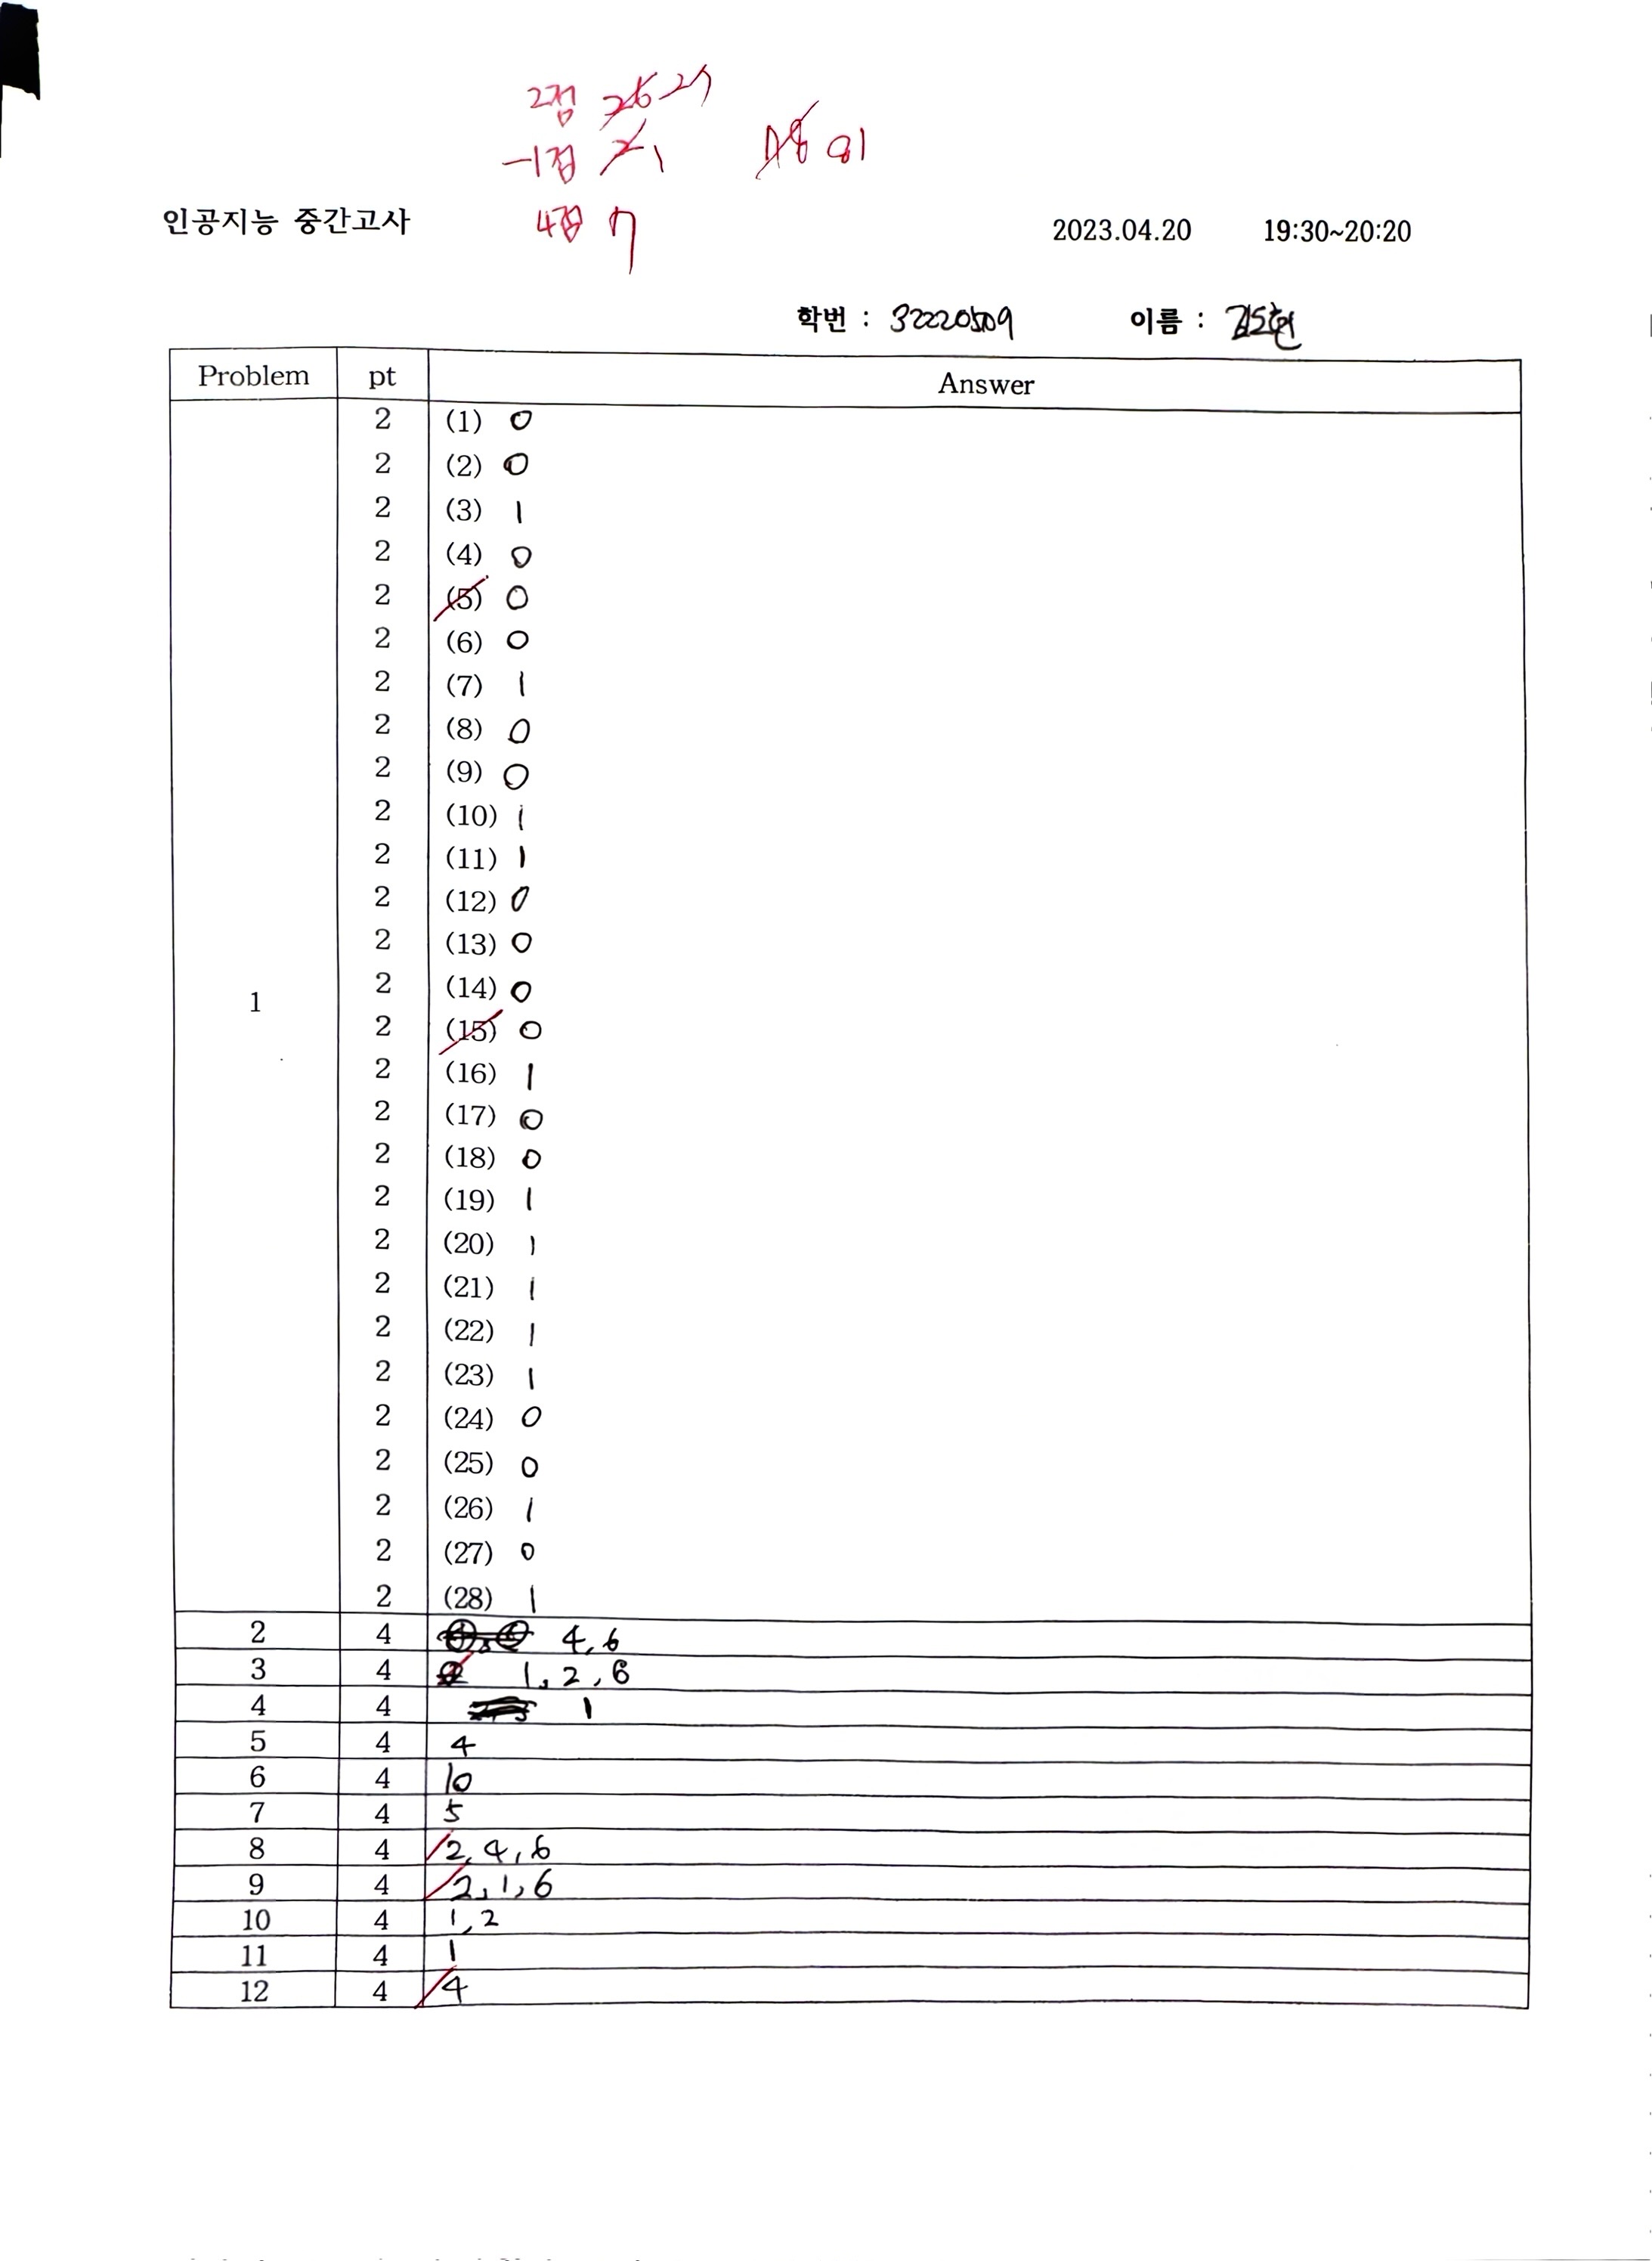 2점 26 27
-1점 2 1 78 81
4점 7
인공지능 중간고사 2023.04.20 19:30~20:20
학번 : 32220509 이름 : 김도현
Problem pt Answer
2 (1) 0
2 (2) 0
2 (3) 1
2 (4) 0
2 (5) 0
2 (6) 0
2 (7) 1
2 (8) 0
2 (9) 0
2 (10) 1
2 (11) 1
2 (12) 0
2 (13) 0
2 (14) 0
1
2 (15) 0
2 (16) 1
2 (17) 0
2 (18) 0
2 (19) 1
2 (20) 1
2 (21) 1
2 (22) 1
2 (23) 1
2 (24) 0
2 (25) 0
2 (26) 1
2 (27) 0
2 (28) 1
2 4 4, 6
3 4 1, 2, 6
4 4 1
5 4 4
6 4 10
7 4 5
8 4 2, 4, 6
9 4 2, 1, 6
10 4 1, 2
11 4 1
12 4 4